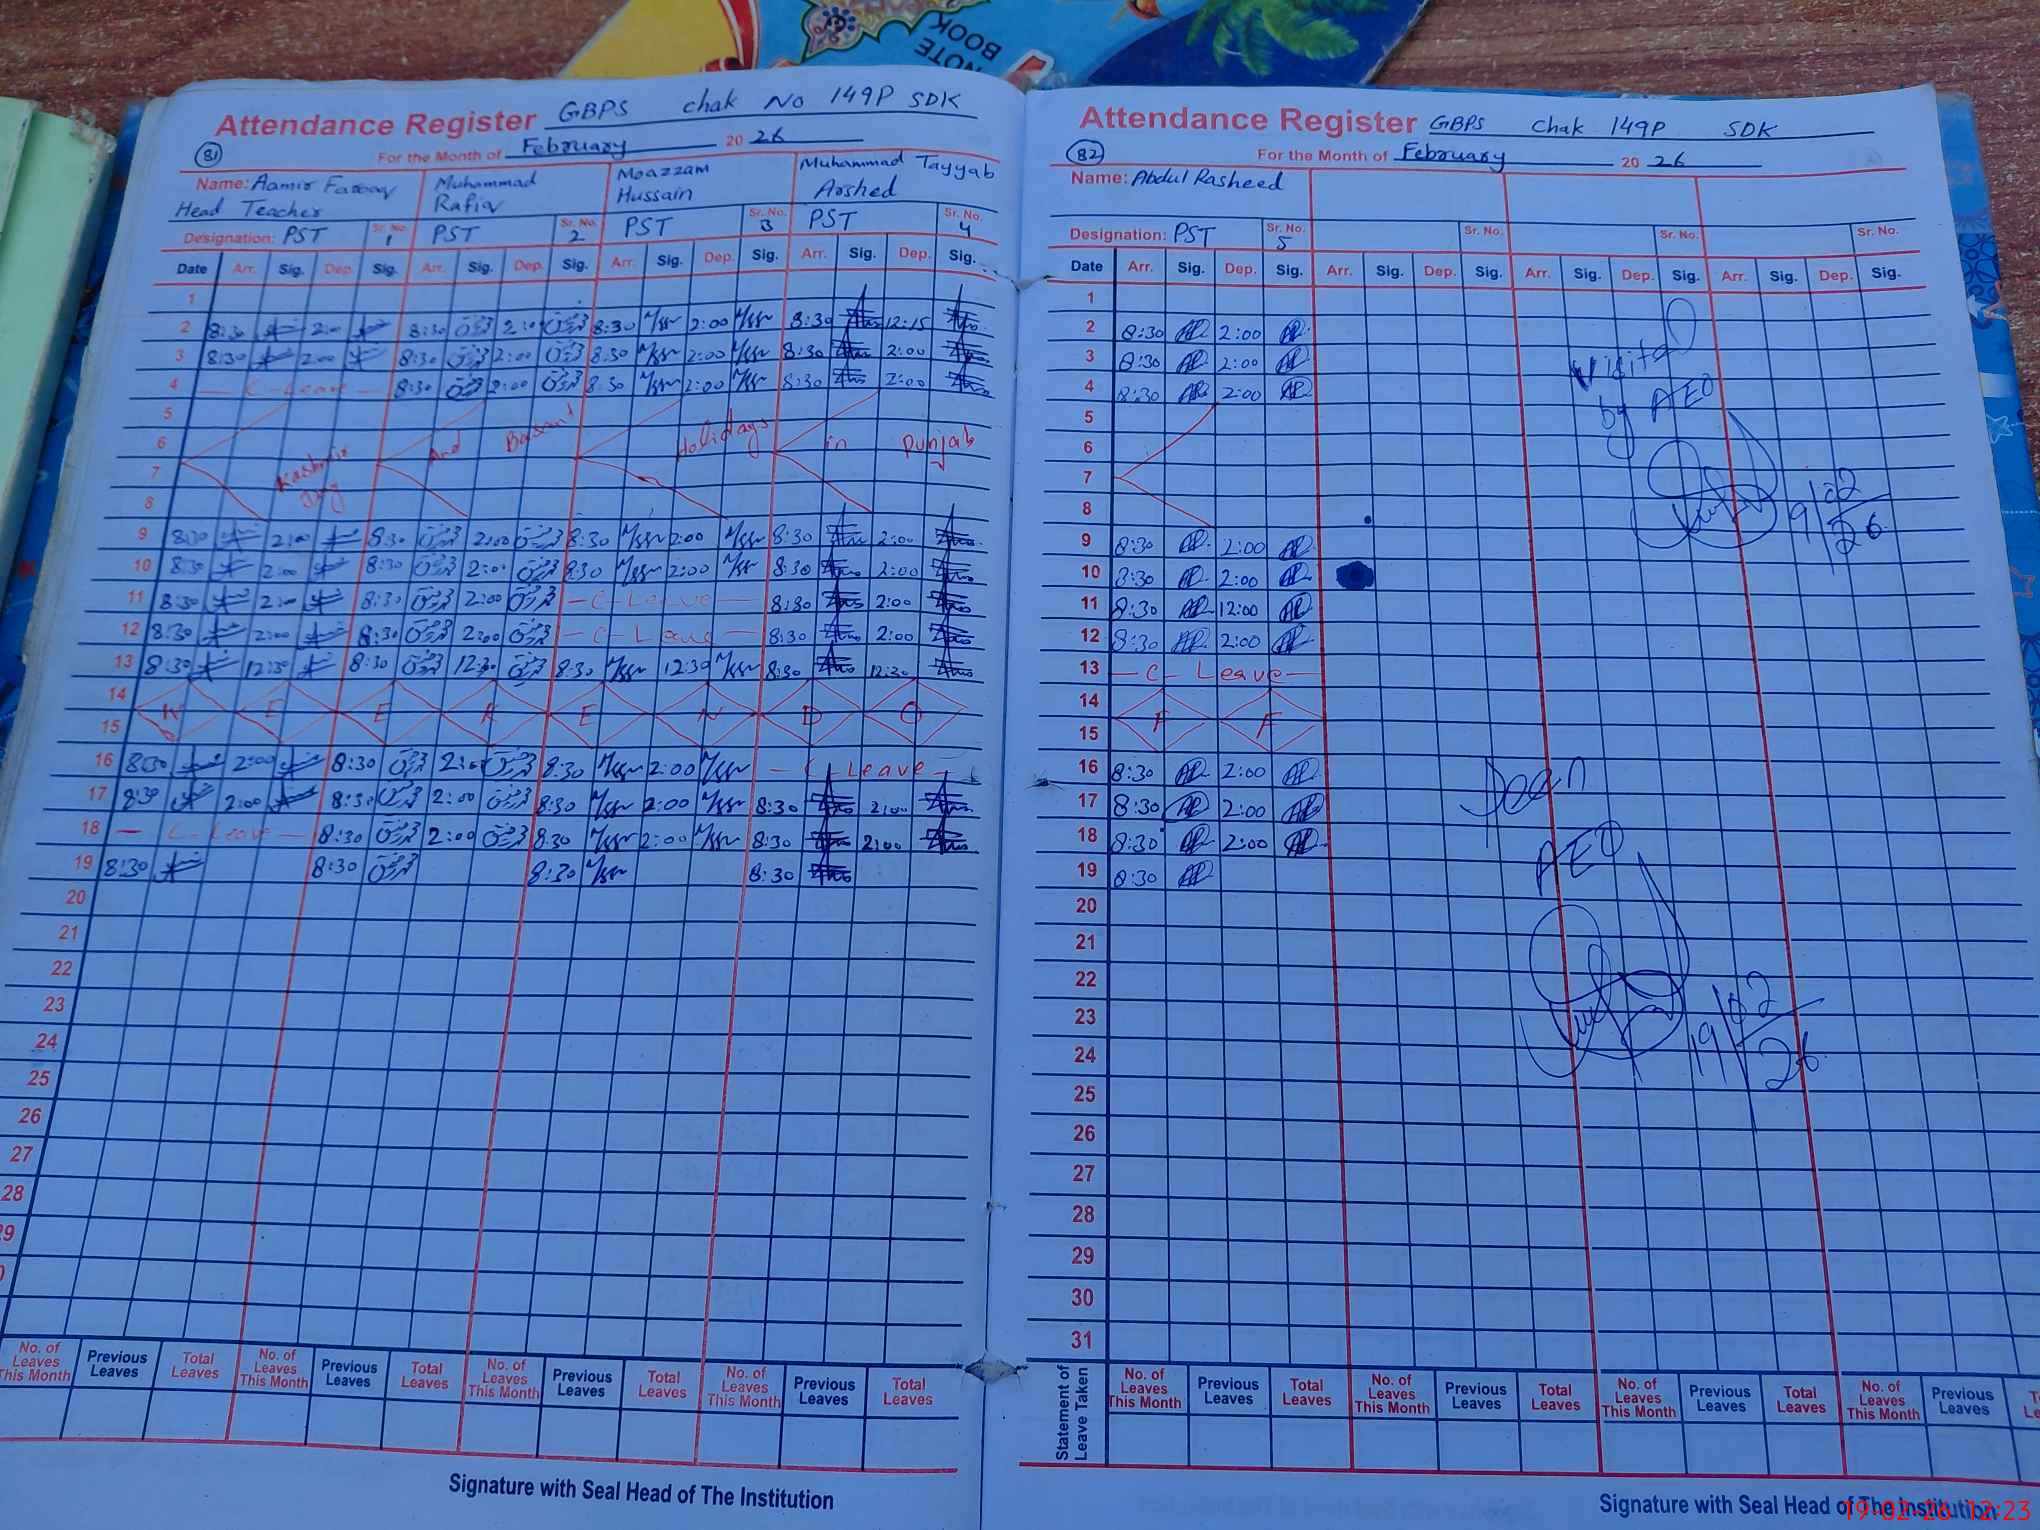 NOTE
BOOK
Attendance Register GBPS chak No 149P SDK
81 For the Month of February 20 26
Name: Aamir Farooq Muhammad Rafiq Moazzam Hussain Muhammad Tayyab Arshed
Head Teacher
Designation: PST Sr. No. 1 PST Sr. No. 2 PST Sr. No. 3 PST Sr. No. 4
Date Arr. Sig. Dep. Sig. Arr. Sig. Dep. Sig. Arr. Sig. Dep. Sig. Arr. Sig. Dep. Sig.
1
2 8:30 2:00 8:30 2:00 8:30 2:00 8:30 12:15
3 8:30 2:00 8:30 2:00 8:30 2:00 8:30 2:00
4 C-Leave 8:30 2:00 8:30 2:00 8:30 2:00
5
6 Kashmir Day And Basant Holidays in Punjab
7
8
9 8:30 2:00 8:30 2:00 8:30 2:00 8:30 2:00
10 8:30 2:00 8:30 2:00 8:30 2:00 8:30 2:00
11 8:30 2:00 8:30 2:00 -C-Leave- 8:30 2:00
12 8:30 2:00 8:30 2:00 -C-Leave- 8:30 2:00
13 8:30 12:30 8:30 12:30 8:30 12:30 8:30 12:30
14 W E E K E N D O
15
16 8:30 2:00 8:30 2:00 8:30 2:00 - C Leave -
17 8:30 2:00 8:30 2:00 8:30 2:00 8:30 2:00
18 - C-Leave - 8:30 2:00 8:30 2:00 8:30 2:00
19 8:30 8:30 8:30 8:30
20
21
22
23
24
25
26
27
28
29
No. of Leaves This Month Previous Leaves Total Leaves No. of Leaves This Month Previous Leaves Total Leaves No. of Leaves This Month Previous Leaves Total Leaves No. of Leaves This Month Previous Leaves Total Leaves
Signature with Seal Head of The Institution
Attendance Register GBPS Chak 149P SDK
82 For the Month of February 20 26
Name: Abdul Rasheed
Designation: PST Sr. No. 5 Sr. No. Sr. No. Sr. No.
Date Arr. Sig. Dep. Sig. Arr. Sig. Dep. Sig. Arr. Sig. Dep. Sig. Arr. Sig. Dep. Sig.
1
2 8:30 2:00
3 8:30 2:00
4 8:30 2:00
5
6
7
8
9 8:30 2:00
10 8:30 2:00
11 8:30 12:00
12 8:30 2:00
13 -C- Leave-
14 F F
15
16 8:30 2:00
17 8:30 2:00
18 8:30 2:00
19 8:30
20
21
22
23
24
25
26
27
28
29
30
31
by AEO
9/02/26
AEO
19/02/26
Statement of Leave Taken No. of Leaves This Month Previous Leaves Total Leaves No. of Leaves This Month Previous Leaves Total Leaves No. of Leaves This Month Previous Leaves Total Leaves No. of Leaves This Month Previous Leaves
Signature with Seal Head of The Institution
19-02-26 12:23